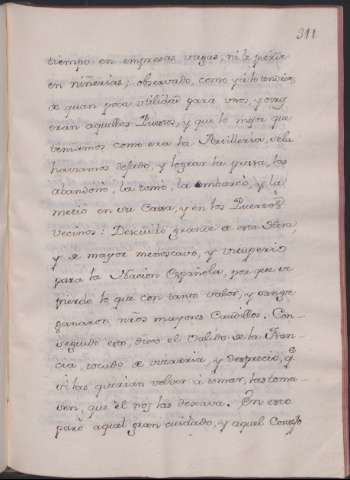 311
tiempo en empresas vagas, ni le perdie
en niñerias; observado, como ya lo tenia,
de quan poca utilidad para unos, y otros
eran aquellos Puertos, y que lo mejor que
teniamos como era la Artilleria, se la
haviamos dejado, y lograr su ruina, los
abandonó, la tomó, la embarcó, y la
metió en su Casa, y en los Puertos
vecinos: Descuido grande de esta
y de mayor menoscavo, y vituperio
para la Nacion Española, por que se
pierde lo que con tanto valor, y sangre
ganaron nrõs mayores Caudillos. Con-
seguido esto, dixo el Valido de la Fran-
cia, de y desprecio, q̃
si las querian volver á tomar, las toma-
sen, que él nos las dexava. En esto
paró aquel gran cuidado, y aquel Consejo